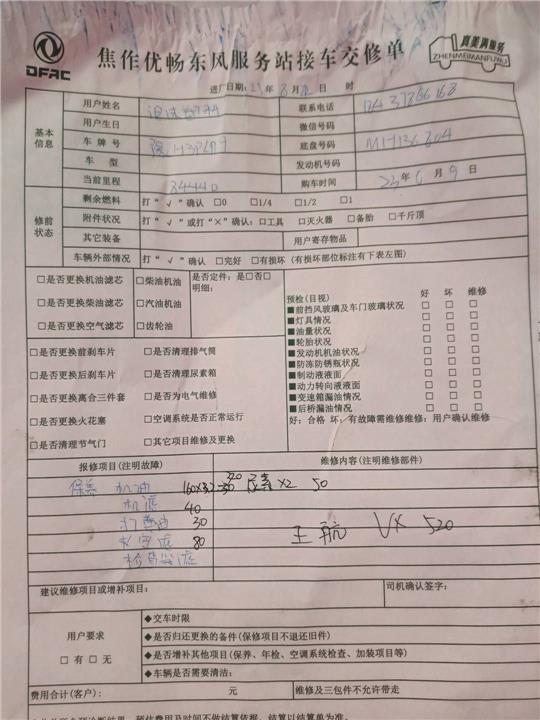 DFAC
焦作优畅东风服务站接车交修单
真美满服务
ZHENMEIMANFUWU
进厂日期: 年 8 月 日 时
基本信息
用户姓名
联系电话
用户生日
微信号码
车牌号
底盘号码
车型
发动机号码
当前里程
购车时间 23年 月 9 日
修前状态
剩余燃料 打“√”确认 □0 □1/4 □1/2 □1
附件状况 打“√”或打“×”确认: □工具 □灭火器 □备胎 □千斤顶
其它装备
用户寄存物品
车辆外部情况 打“√”确认 □完好 □有损坏 (有损坏部位标注有下表左图)
□是否更换机油滤芯 □柴油机油 是否定件: 是□否□
明细:
□是否更换柴油滤芯 □汽油机油
□是否更换空气滤芯 □齿轮油
□是否更换前刹车片 □是否清理排气筒
□是否更换后刹车片 □是否清理尿素箱
□是否更换离合三件套 □是否为电气维修
□是否更换火花塞 □空调系统是否正常运行
□是否清理节气门 □其它项目维修及更换
预检(目视) 好 坏 维修
■前挡风玻璃及车门玻璃状况 □ □ □
■灯具情况 □ □ □
■油量状况 □ □ □
■轮胎状况 □ □ □
■发动机机油状况 □ □ □
■防冻防锈瓶状况 □ □ □
■制动液液面 □ □ □
■动力转向液液面 □ □ □
■变速箱漏油情况 □ □ □
■后桥漏油情况 □ □ □
好: 合格 坏: 有故障需维修维修: 用户确认维修
报修项目(注明故障) 维修内容(注明维修部件)
保养 机油 320 尿素×2 50
机滤 40
30
80
王航 520
建议维修项目或增补项目:
司机确认签字:
用户要求
□有 □无
◆交车时限
◆是否归还更换的备件(保修项目不退还旧件)
◆是否增补其他项目(保养、年检、空调系统检查、加装项目等)
◆车辆是否需要清洁:
费用合计(客户): 元 维修及三包件不允许带走
预估费用及时间不做结算依据，结算以结算单为准。